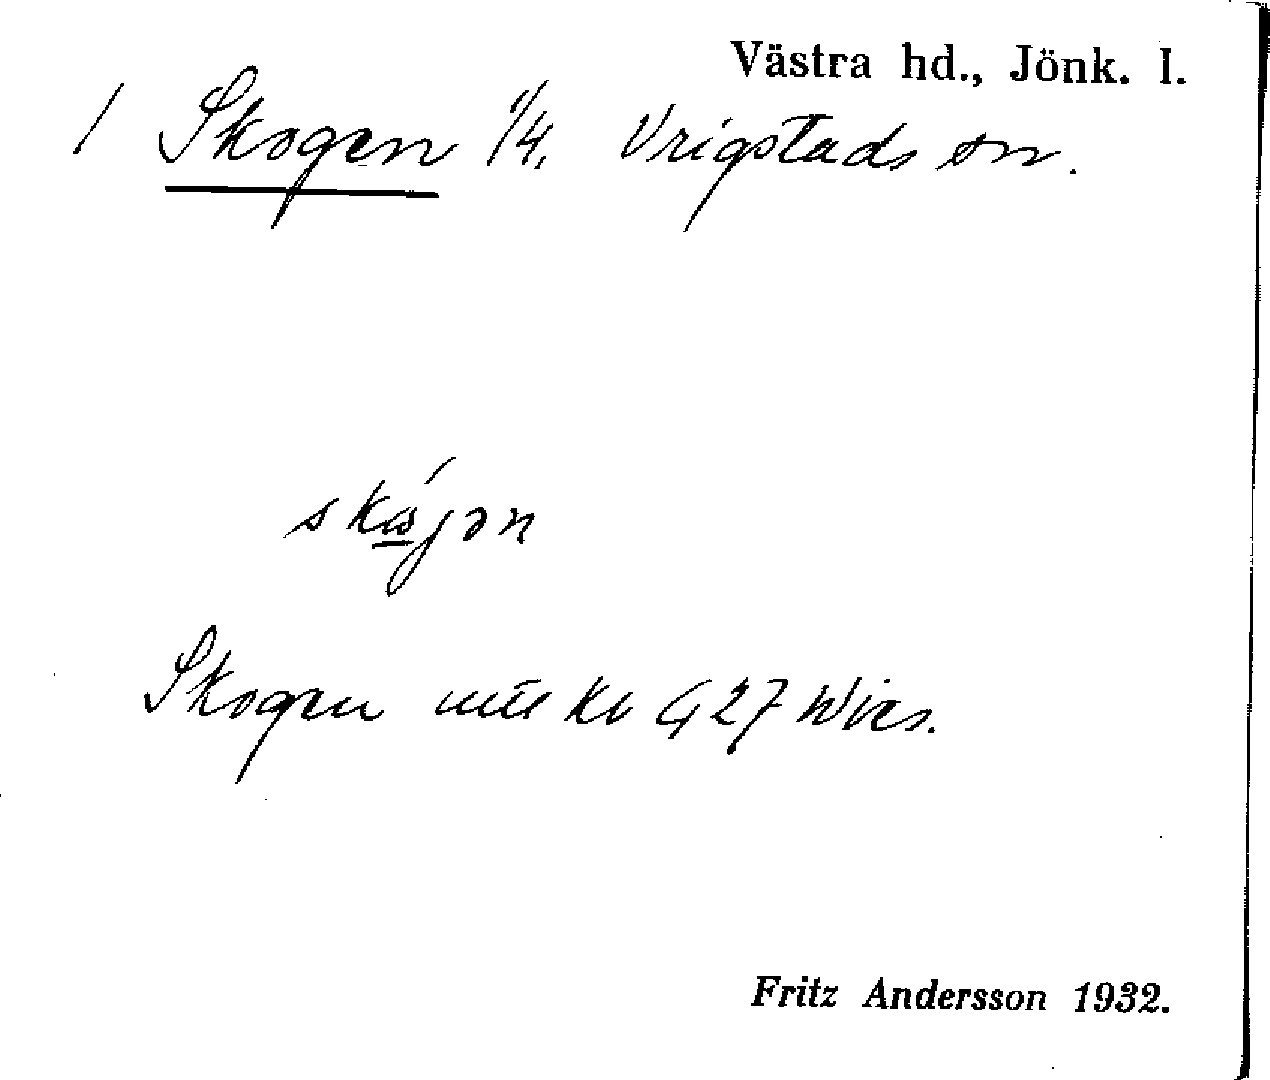 Västra hd., Jönk. l.
/ Skogen 1/4, Vrigstads sn.
skójən
Skogen
Fritz Andersson 1932.